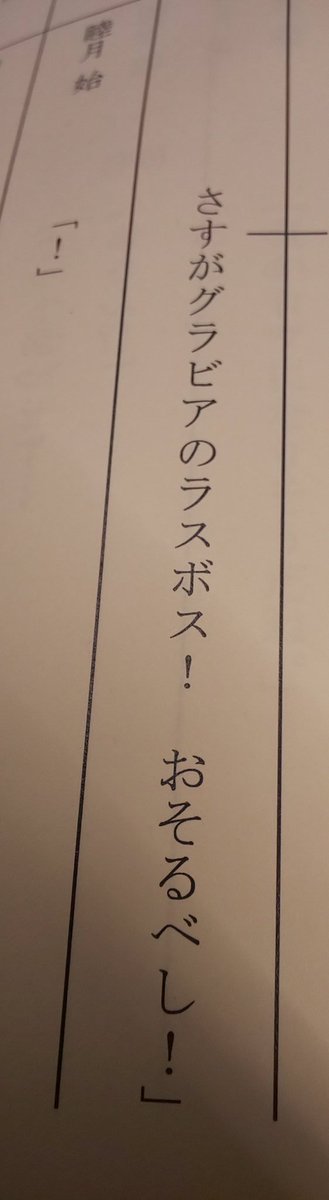 さすがグラビアのラスボス！　おそるべし！」
睦月 始
「！」